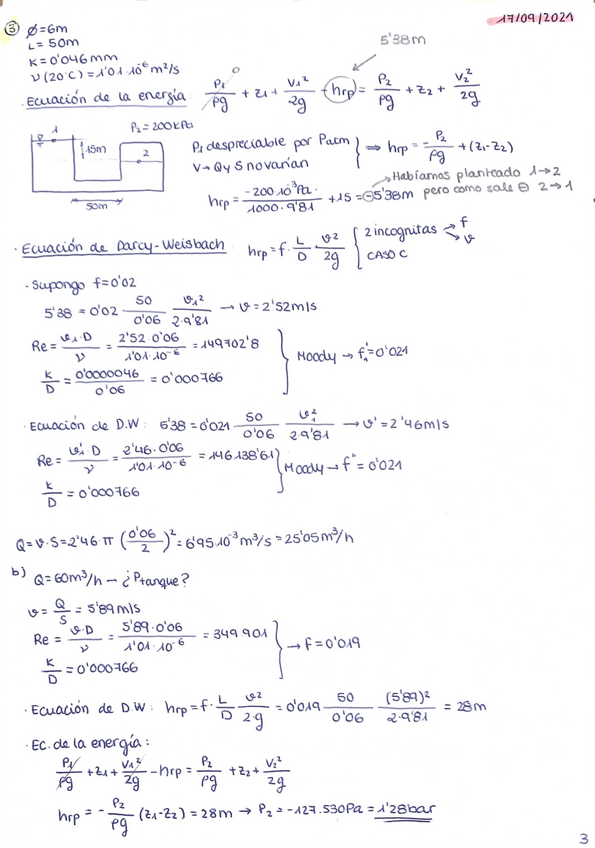 17/09/2021
③ Ø=6m
L=50m
K=0'046mm
ν(20°C)=1'01·10⁻⁶ m²/s
5'38m
· Ecuación de la energía: P₁/ρg + z₁ + V₁²/2g - hrp = P₂/ρg + z₂ + V₂²/2g
0
P₂=200kPa
1
15m
2
50m
P₁ despreciable por Patm
V→Q y S no varían
⇒ hrp = -P₂/ρg + (z₁-z₂)
hrp = -200·10³Pa·/1000·9'81 + 15 = ⊖5'38m
Habíamos planteado 1→2
pero como sale ⊖ 2→1
· Ecuación de Darcy-Weisbach hrp=f·L/D·v²/2g { 2 incognitas → f → v
CASO C
· Supongo f=0'02
5'38 = 0'02 50/0'06 v₁²/2·9'81 → v=2'52m/s
Re = v₁·D/ν = 2'52·0'06/1'01·10⁻⁶ = 149702'8
K/D = 0'0000046/0'06 = 0'000766
Moody → f₁'=0'021
· Ecuación de D.W: 5'38=0'021 50/0'06 v₁²/2·9'81 → v'=2'46m/s
Re = v₁'·D/ν = 2'46·0'06/1'01·10⁻⁶ = 146138'61
K/D = 0'000766
Moody → f''=0'021
Q=v·S=2'46·π(0'06/2)²=6'95·10⁻³m³/s=25'05m³/h
b) Q=60m³/h → ¿Ptanque?
v = Q/S = 5'89m/s
Re = v·D/ν = 5'89·0'06/1'01·10⁻⁶ = 349901
K/D = 0'000766
→ f=0'019
· Ecuación de D.W: hrp=f·L/D v²/2·g = 0'019 50/0'06 (5'89)²/2·9'81 = 28m
· Ec. de la energía:
P₁/ρg + z₁ + V₁²/2g - hrp = P₂/ρg + z₂ + V₂²/2g
hrp = -P₂/ρg (z₁-z₂) = 28m → P₂ = -127.530Pa = 1'28bar
3